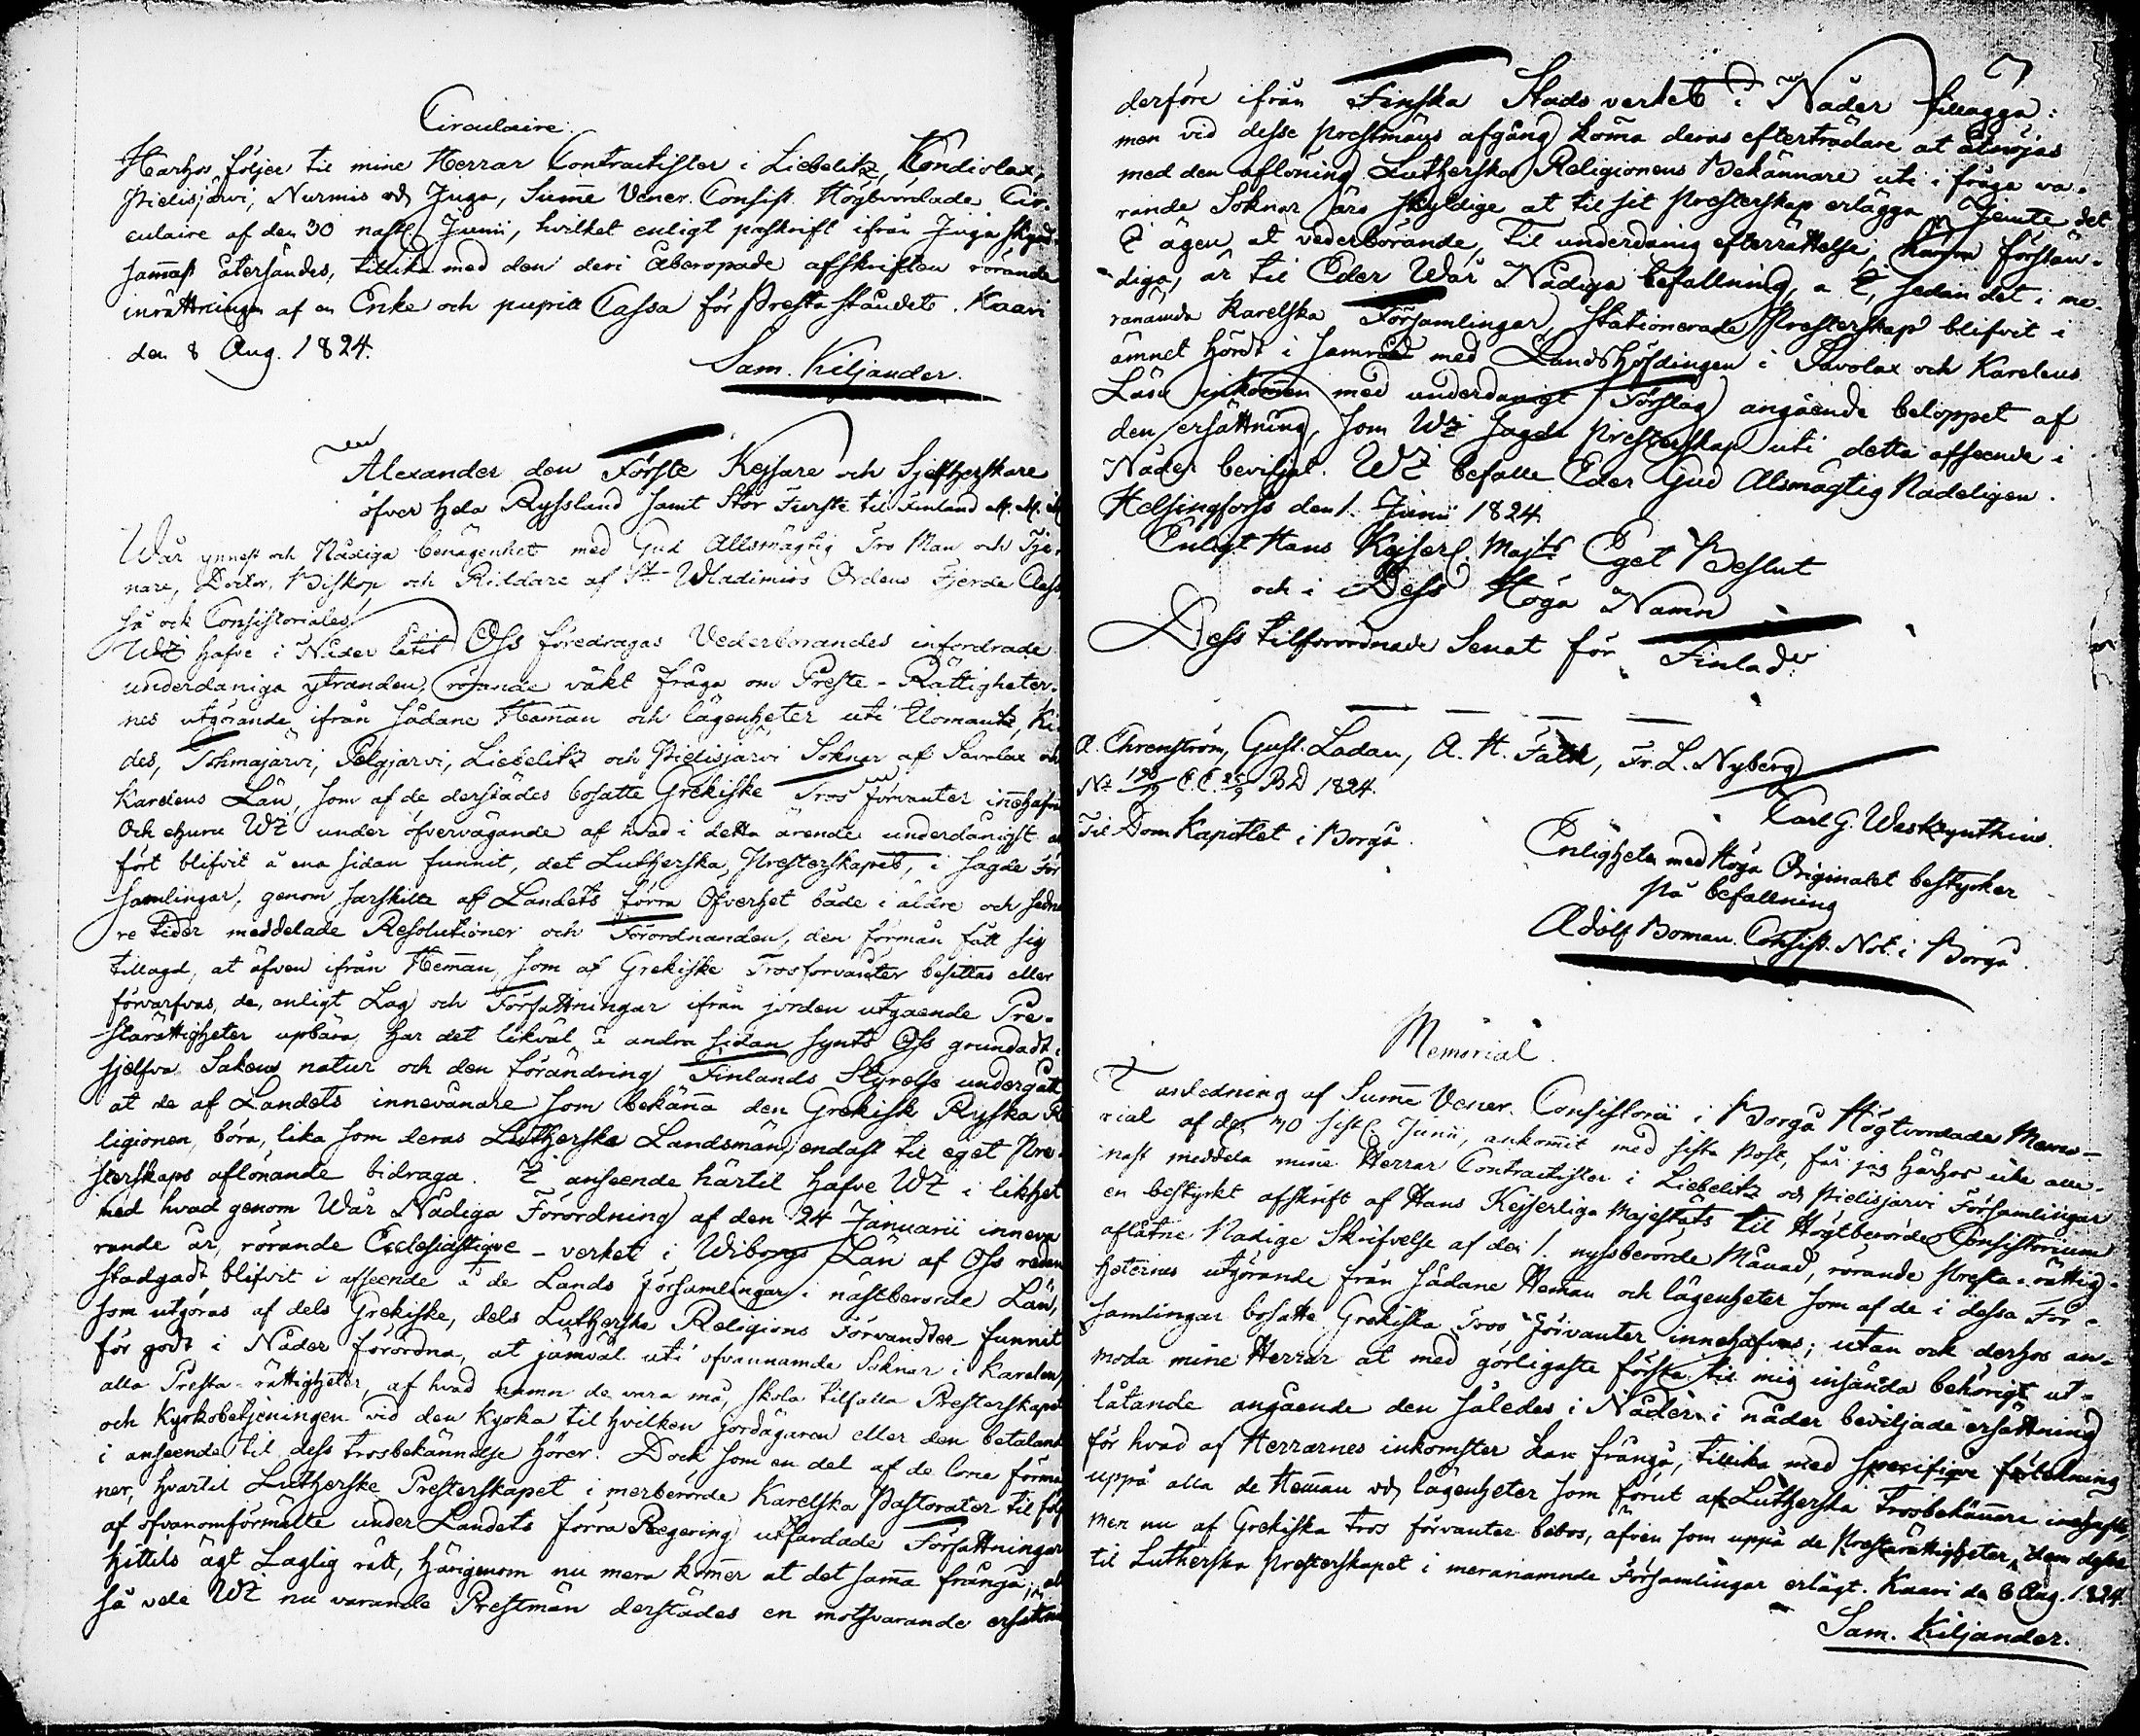 Circulaire.
Härhos följer til mine Herrar Contractister i Liebelitz, Kondiolax,
Pielisjärvi, Nurmis och Juga, Summe Vener. Consist. Högtvördade Cir-
culaire af den 30 nästl. Junii, hvilket enligt påskrift ifrån Juga skynd-
sammast återsändes, tillika med den deri åberopade afskriften rörande
inrättningen af en Enke och pupill Cassa för Presta ståndet. Kaavi
den 8 Aug. 1824.
Sam. Kiljander.
Alexander den Förste Kejsare och Sjelfherskare
öfver hela Ryssland samt Stor Furste til Finland M. M. M.
Wår ynnest och Nådiga benägenhet med Gud Allsmägtig Tro Man och Tje-
nare, Doctor, Biskop och Riddare af St. Wladimirs Ordens Fjerde Class
så ock Consistoriales!
Wi hafve i Nåder låtit Oss föredragas Vederbörandes infordrade
underdåniga yttranden, rörande väkt fråga om Preste-Rättigheter-
nes utgörande ifrån sådane Hemman och lägenheter uti Ilomantz, Ki-
des, Tohmajärvi, Pelgjärvi, Liebelitz och Pielisjärvi Soknar af Savolax och
Karelens Län, som af de derstädes bosatte Grekiske Tros förvanter innehafvas
Och ehuru Wi under öfvervägande af hvad i detta ärende underdånigst an-
fört blifvit å ena sidan funnit, det Lutherska Presterskapet, i sagde För
samlingar, genom särskilte af Landets förra Öfverhet både i äldre och sedna-
re tider meddelade Resolutioner och Förordnanden, den förmån fått sig
tillagd, at äfven ifrån Hemman, som af Grekiske Trosförvanter besittas eller
förvärfvas, de, enligt Lag och Författningar ifrån jorden utgående Pre-
starättigheter upbära, har det likväl å andra sidan synts Oss grundadt i
sjelfva Sakens natur och den förändring Finlands Styrelse undergått
at de af Landets innevånare som bekänna den Grekisk Ryska Re
ligionen, böra, lika som deras Lutherska Landsmän, endast til eget Pre-
sterskaps aflönande bidraga. I anseende härtil hafve Wi i likhet
med hvad genom Wår Nådiga Förordning af den 24 Januarii inneva
rande år, rörande Ecclesiastique-verket i Wiborgs Län af Oss redan
stadgadt blifvit i afseende å de Lands församlingar i nästberörde Län,
som utgöras af dels Grekiske, dels Lutherska Religions Förvandter funnit
för godt i Nåder förordna, at jämväl uti ofvannämde Soknar i Karelen
alla Presta-rättigheter, af hvad namn de vara må, skola tilfalla Presterskapet
och Kyrkobetjeningen vid den Kyrka til hvilken Jordägaren eller den betalande
i anseende til dess trosbekännelse hörer. Dock som en del af de löne förmå
ner, hvartil Lutherske Presterskapet i merberörde Karelska Pastorater til följ
af ofvanomförmälte under Landets förra Regering utfärdade Författningar
hittils ägt Laglig rätt, härigenom nu mera kommer at det samma frångå; al
så vele Wi nu varande Prestmän derstädes en motsvarande ersättn
derföre ifrån Finska Stads verket i Nåder tillägga:
men vid desse prestmäns afgång komma deras efterträdare at åtnöjas
med den aflöning Lutherska Religionens Bekännare uti i fråga va-
rande Soknar äro skyldige at til sit Presterskap erlägga. Jemte det
I ägen, at vederbörande, til underdånig efterrättelse, härom förstän-
diga, är til Eder Wår Nådiga befallning, a I, sedan det i me-
ranämde Karelska Församlingar stationerade Presterskap blifvit i
ämnet hördt i samråd med Landshöfdingen i Savolax och Karelens
Län inkommen med underdånigt Förslag angående beloppet af
den ersättning, som Wi sagde Presterskap uti detta afseende i
Nåder beviljat. Wi befalle Eder Gud Alsmägtig Nådeligen.
Helsingfors den 1. Junii 1824.
Enligt Hans Kejserl. Majts Eget Beslut
och i Dess Höga Namn
Dess tilförordnade Senat för Finland.
A. Ehrenström, Gust. Ladau, A. H. Falck, Fr. L. Nyberg
Carl G. Weskynthius.
Til DomKapitlet i Borgå.
Enligheten med Höga Originalet bestyrker
På befallning
Adolf Boman. Consist. Not. i Borgå.
Memorial.
I anledning af Summe Vener. Consistorii i Borgå Högtvördade Memo-
rial af den 30 sistl. Junii, ankommit med sista Post, får jag härhos icke alle-
nast meddela mine Herrar Contractister i Liebelitz och Pielisjärvi Församlingar
en bestyrkt afskrift af Hans Kejserliga Majestäts til Högtberörde Consistorium
aflåtne Nådige Skrifvelse af den 1. nyssberörde Månad, rörande Presta-rättig-
heternes utgörande från sådane Hemman och lägenheter som af de i dessa För-
samlingar bosatte Grekiska Tros Förvanter innehafvas; utan ock derhos an-
moda mine Herrar at med görligaste första til mig insända behörigt ut-
låtande angående den således i Nåder i nåder beviljade ersättning
för hvad af Herrarnes inkomster kan frångå, tillika med specifique förtekning
uppå alla de Hemman och lägenheter som förut af Lutherska Trosbekännare innehafts,
men nu af Grekiska tros förvanter bebos, äfven som uppå de Prestarättigheter, dem desse
til Lutherska Presterskapet i meranämnde Församlingar erlagt. Kaavi den 8 Aug. 1824.
Sam. Kiljander.